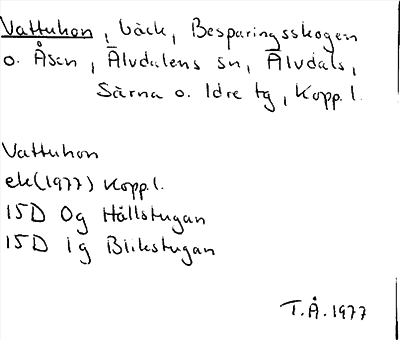 Vattuhon, bäck, Besparingsskogen
o. Åsen, Älvdalens sn, Älvdals,
Särna o. Idre tg, Kopp.l.
Vattuhon
ek(1977) Kopp.l.
15D 0g Hållstugan
15D 1g Blikstugan
T.Å.1977